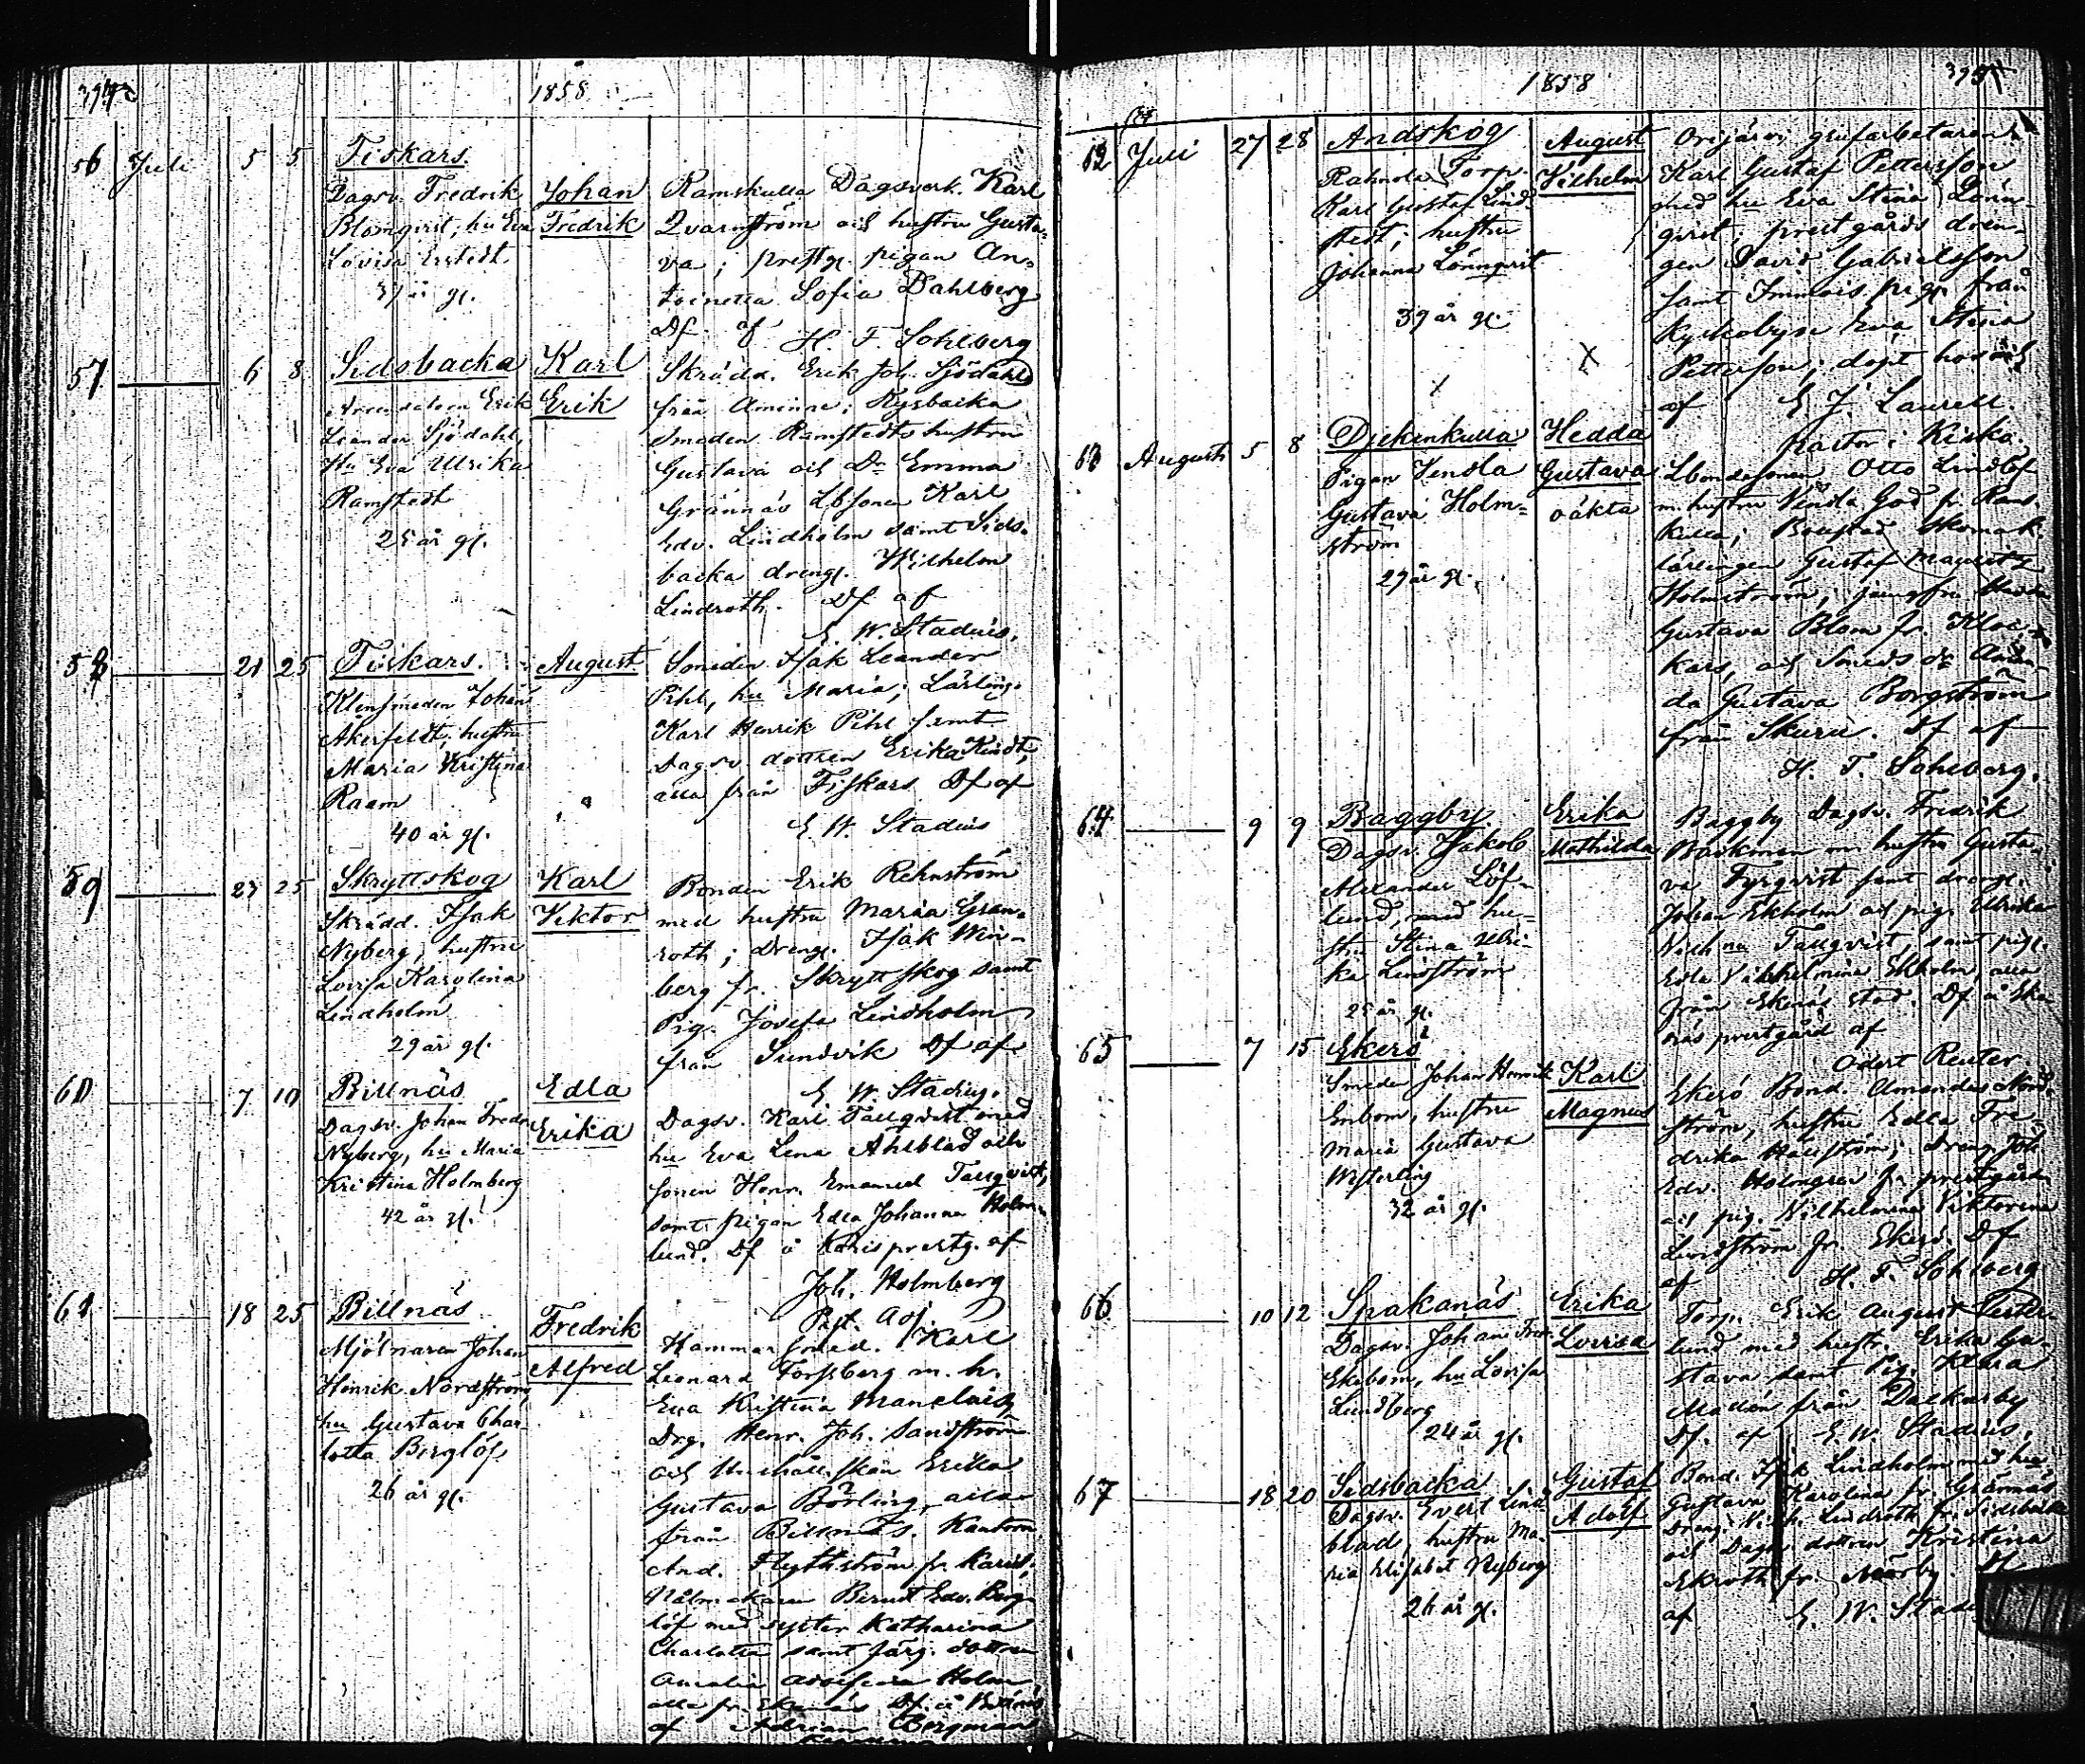 1858
56 Juli 5 5 Fiskars.
Dagsv. Fredrik
Blomqvist, hu Eva
Lovisa Erstedt
37 år gl.
Johan
Fredrik
Ramskulla Dagsverk. Karl
Qvarnström och hustru Gusta-
va; prestg. pigan An-
toinetta Sofia Dahlberg
Df. af H. F. Sohlberg
57 6 8 Sidsbacka
Arrendatorn Erik
Leander Sjödahl,
Hu Eva Ulrika
Ramstedt
25 år gl.
Karl
Erik
Skrädd. Erik Joh. Sjödahl
från Aminne; Kysbacka
Smeden Ramstedts hustru
Gustava och Dr Emma
Grännäs Lbsonen Karl
Edv. Lindholm samt Sids-
backa drengl. Wilhelm
Lindroth. Df af
E. W. Stadius.
58 21 25 Fiskars.
Klensmeden Johan
Åkerfeldt, hustru
Maria Kristina
Raam
40 år gl.
August
Smeden Isak Leander
Pihl, hu Maria; Lärling.
Karl Henrik Pihl samt
Dagsv. dottren Erika Kindt,
alla från Fiskars Df af
E. W. Stadius
59 23 25 Skryttskog
Skrädd. Isak
Nyberg, hustru
Lovisa Karolina
Lindholm
29 år gl.
Karl
Viktor
Bonden Erik Rehnström
med hustru Maria Gran-
roth; Dreng. Isak Win-
berg fr. Skryttskog samt
Pig. Josefa Lindholm
från Sundvik Df af
E. W. Stadius.
60 7 10 Billnäs
Dagsv. Johan Fredr.
Nyberg, hu Maria
Kristina Holmberg
42 år gl.
Edla
Erika
Dagsv. Karl Tallqvist med
hu Eva Lena Ahlblad och
sonen Henr. Emanuel Tallqvist,
samt pigan Edla Johanna Holm-
lund. Df å Karis prestg. af
Joh. Holmberg
Past. Adj.
61 18 25 Billnäs
Mjölnaren Johan
Henrik Nordström,
hu Gustava Char-
lotta Berglöf
26 år gl.
Fredrik
Alfred
Hammarsmed. Karl
Leonard Forssberg m. h.
Eva Kristina
Drg. Henr. Joh. Sandström
och Hushållerskan Erika
Gustava Börling, alla
från Billnäs. Kantorn
And. Flythström fr. Karis,
Berndt Edv. Berg-
löf med syster Katharina
Charlotta samt färg. dottren
Amalia Holm
alla fr. Ekenäs. Df. å Billnäs
af Adrian Bergman
1858
62 Juli 27 28 Andskog
Torp.
Karl Gustaf Lind-
stedt; hustru
Johanna Lönnqvist
39 år gl.
August
Vilhelm
Orijärvi grufarbetaren
Karl Gustaf Pettersson
med hu Eva Stina Lönn-
qvist; prestgårds dren-
gen David Gabrielsson
samt pig. från
Kyrkobyn Eva Stina
Pettersson; döpt hos och
af E. J. Laurell.
Pastor i Kisko.
63 Augusti 5 8 Djekenkulla
Pigan Vendla
Gustava Holm-
ström
29 år gl.
Hedda
Gustava
oäkta
Lbondesonen Otto Lindlöf
m. hustru Vendla God fr. Rams-
kulla; Skomak.
lärlingen Gustaf
Holmström, jungfru Hedda
Gustava Blom fr. Kloc-
kars, och Smeds dr Aman-
da Gustava Borgström
från Skuru. Df af
H. F. Sohlberg.
64 9 9 Baggby
Dagsv. Jakob
Alexander Löf-
lund, med hu-
str. Stina Ulri-
ka Lindström
25 år gl.
Erika
Mathilda
Baggby Dagsv. Fredrik
Backman m. hustru Gusta-
va Fyrqvist samt drengl.
Johan Ekholm och pig. Ulrika
Tallqvist, samt pigl.
Edla Vilhelmina Ekholm, alla
från Ekenäs stad. Df. å Eke-
näs prestgård af
Odert Reuter
65 7 15 Ekerö
Smeden Johan Henrik
Enbom, hustru
Maria Gustava
Westerling
32 år gl.
Karl
Magnus
Ekerö Bond. Amandus Nord-
ström, hustru Edla Fre-
drika Hallström; Dreng. Joh.
Edv. Holmgren fr. prestgården
och pig. Vilhelmina Viktorina
Lindström fr. Ekerö. Df
af H. F. Sohlberg
66 10 12 Spakanäs
Dagsv. Johan Fred.
Ekebom, hu Lovisa
Lundberg
24 år gl.
Erika
Lovisa
Torp. Erik August Vester-
lund med hustr. Erika Gu-
stava samt Pig. Klara
Madén från Dalkarby
Df. af E. W. Stadius,
67 18 20 Sidsbacka
Dagsv. Evert Lind-
blad, hustru Ma-
ria Elisabet Nyberg
26 år gl.
Gustaf
Adolf
Bond. Isak Lindholm med hu
Gustava Karolina fr. Grännäs
Dreng. Vilh. Lindroth fr. Sidsbacka
och Dagsv. dottren Kristina
Ekroth fr. Näsby. Df
af E. W. Stad